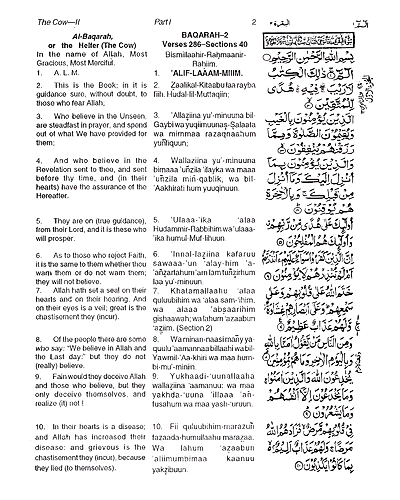 The Cow—II
Part I
2
البقرة ٢
الم ١
Al-Baqarah,
or the Heifer (The Cow)
In the name of Allah, Most
Gracious, Most Merciful.
1. A. L. M.
2. This is the Book; in it is
guidance sure, without doubt, to
those who fear Allah;
3. Who believe in the Unseen,
are steadfast in prayer, and spend
out of what We have provided for
them;
4. And who believe in the
Revelation sent to thee, and sent
before thy time, and (in their
hearts) have the assurance of the
Hereafter.
5. They are on (true guidance),
from their Lord, and it is these who
will prosper.
6. As to those who reject Faith,
it is the same to them whether thou
warn them or do not warn them;
they will not believe.
7. Allah hath set a seal on their
hearts and on their hearing. And
on their eyes is a veil; great is the
chastisement they (incur).
8. Of the people there are some
who say: "We believe in Allah and
the Last day:" but they do not
(really) believe.
9. Fain would they deceive Allah
and those who believe, but they
only deceive themselves, and
realize (it) not !
10. In their hearts is a disease;
and Allah has increased their
disease: and grievous is the
chastisement they (incur), because
they lied (to themselves).
BAQARAH–2
Verses 286–Sections 40
Bismillaahir-Raḥmaanir-
Raḥiim.
1. 'ALIF-LAAAM-MIIIM.
2. Zaalikal-Kitaabu laa rayba
fiih. Hudal-lil-Muttaqiin;
3. 'Allaziina yu'-minuuna bil-
Gaybi wa yuqiimuunaṣ-Ṣalaata
wa mimmaa razaqnaahum
yuñfiquun;
4. Wallaziina yu'-minuuna
bimaaa 'uñzila 'ilayka wa maaa
'uñzila miñ-qablik, wa bil-
'Aakhirati hum yuuqinuun.
5. 'Ulaaa-'ika 'alaa
Hudammir-Rabbihim wa 'ulaaa-
'ika humul-Muf-liḥuun.
6. 'Innal-laziina kafaruu
sawaaa-'un 'alay-him 'a-
'añzartahum 'am lam tuñzirhum
laa yu'-minuun.
7. Khatamallaahu 'alaa
quluubihim wa 'alaa sam-'ihim,
wa alaaa 'abṣaarihim
gishaawah; wa lahum 'azaabun
'aẓiim. (Section 2)
8. Wa minan-naasi mañy-ya-
quulu 'aamannaa billaahi wa bil-
Yawmil-'Aa-khiri wa maa hum-
bi-mu'-minin.
9. Yukhaadi-'uunallaaha
wallaziina 'aamanuu; wa maa
yakhda-'uuna 'illaaa 'añ-
fusahum wa maa yash-'uruun.
10. Fii quluubihim-marazuñ
fazaada-humullaahu marazaa.
Wa lahum 'azaabun
'aliimumbimaa kaanuu
yakzibuun.
بسم الله الرحمن الرحيم
الم ذلك الكتب
لا ريب فيه هدى
للمتقين
الذين يؤمنون بالغيب
ويقيمون الصلوة ومما
رزقنهم ينفقون
والذين يؤمنون بما
انزل اليك وما انزل
من قبلك وبالاخرة
هم يوقنون
اولئك على هدى من ربهم
واولئك هم المفلحون
ان الذين كفروا سواء عليهم
ءانذرتهم ام لم تنذرهم لا يؤمنون
ختم الله على قلوبهم وعلى
سمعهم وعلى ابصارهم غشاوة
ولهم عذاب عظيم
ومن الناس من يقول امنا بالله
وباليوم الاخر وما هم بمؤمنين
يخدعون الله والذين امنوا
وما يخدعون الا انفسهم
وما يشعرون
في قلوبهم مرض فزادهم الله
مرضا ولهم عذاب اليم
بما كانوا يكذبون